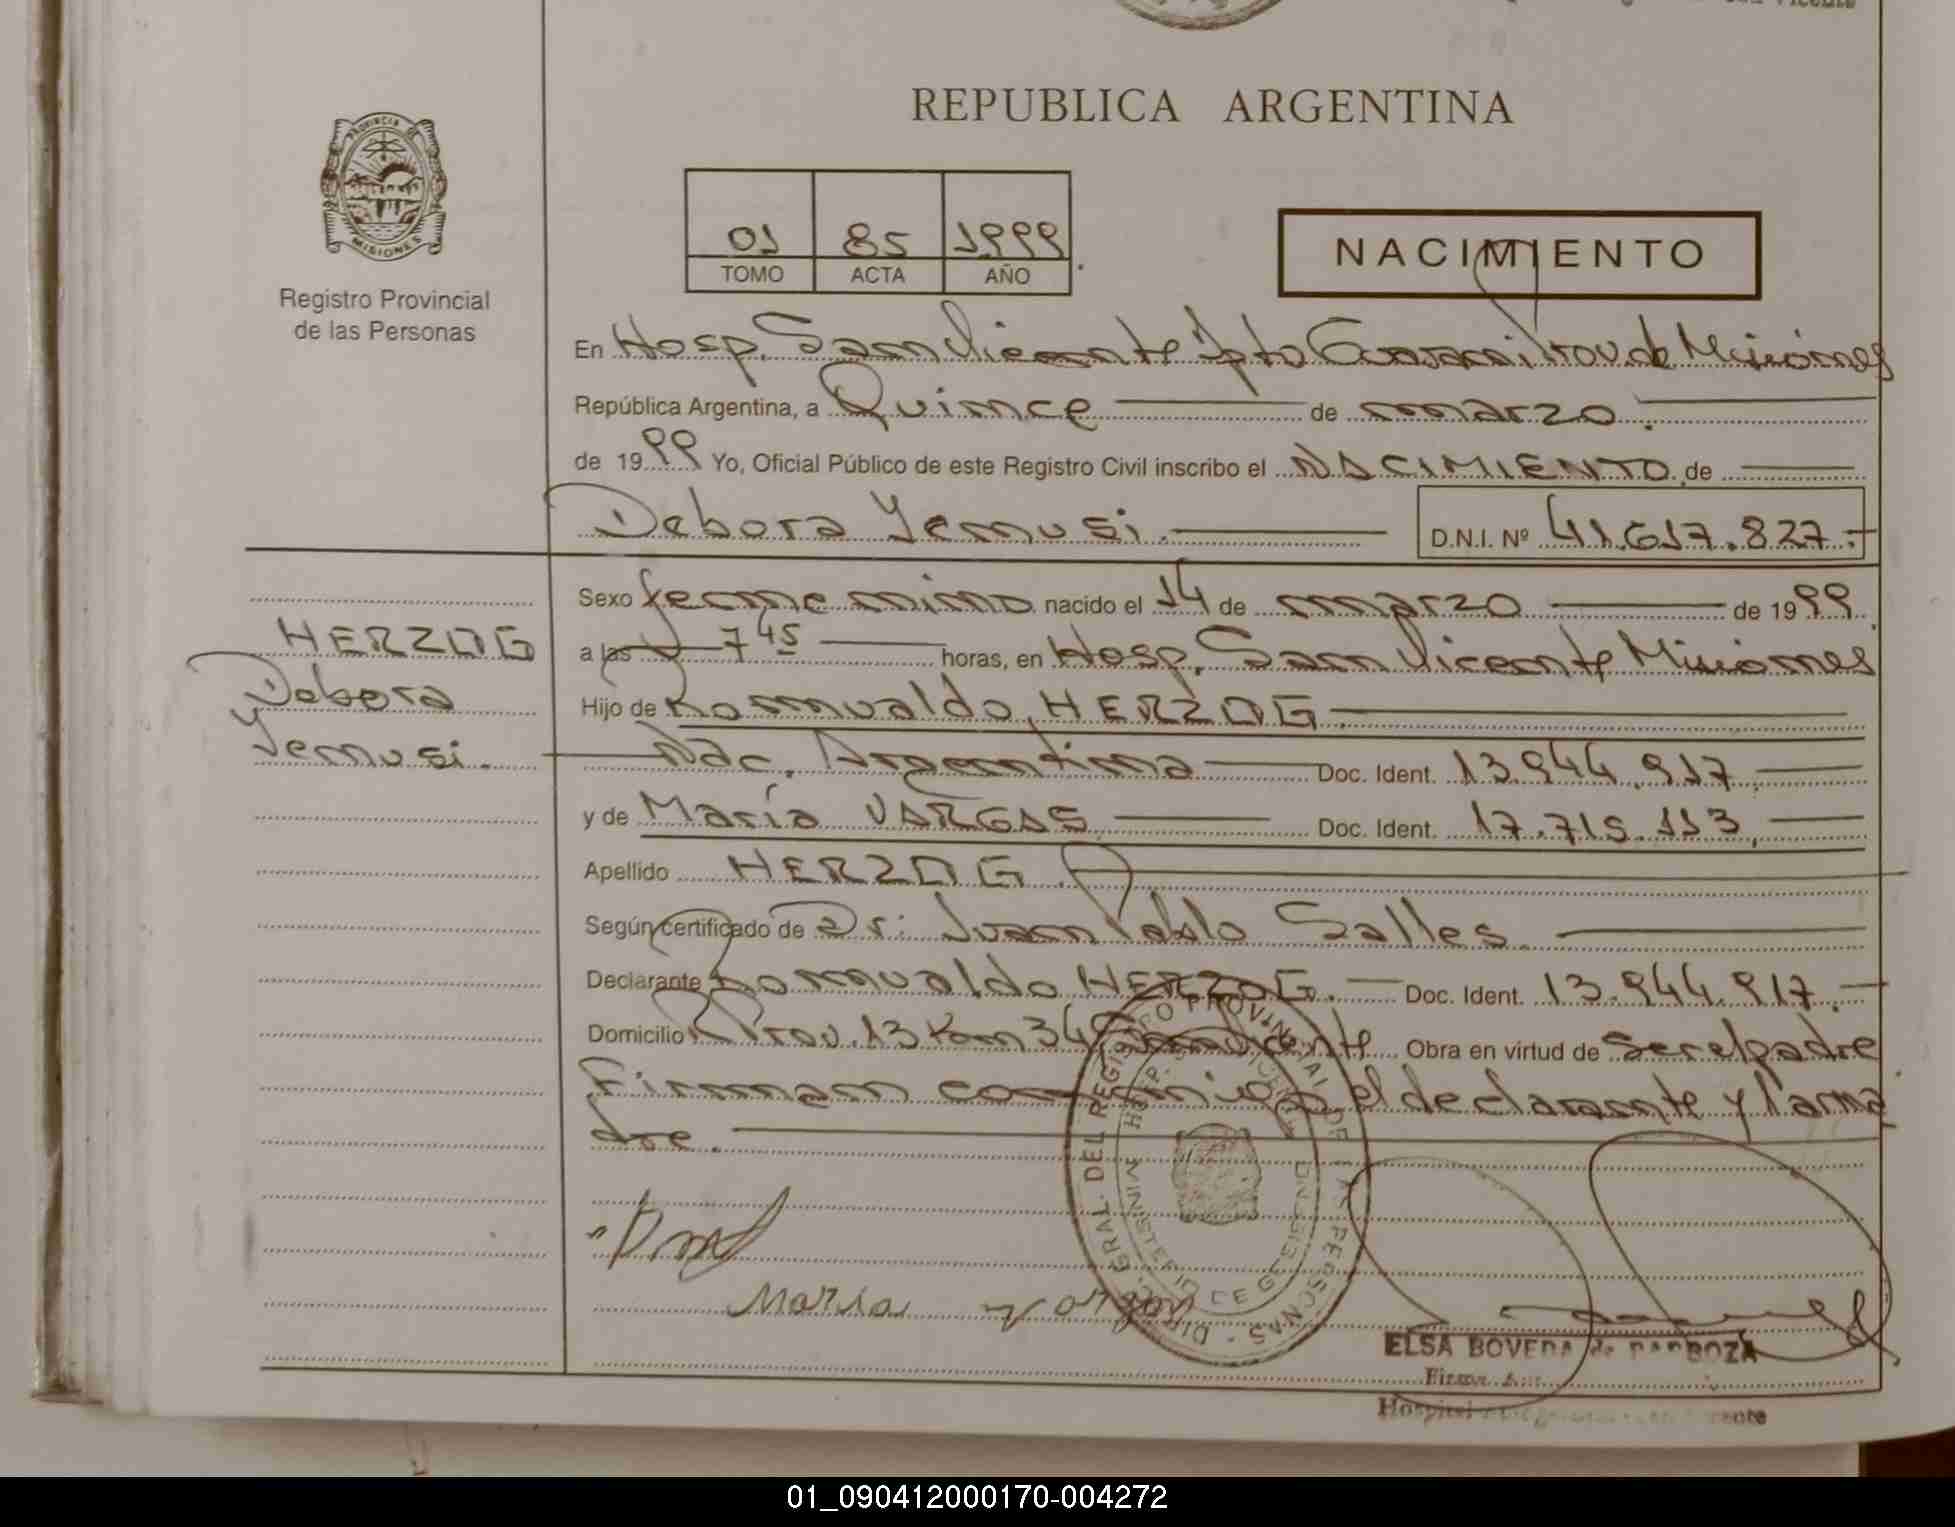 PROVINCIA DE
MISIONES
Registro Provincial
de las Personas
REPUBLICA ARGENTINA
01 85 1999
TOMO ACTA AÑO
NACIMIENTO
En Hosp. San Vicente Dpto Guarani Prov. de Misiones
República Argentina, a Quince de marzo.
de 1999 Yo, Oficial Público de este Registro Civil inscribo el NACIMIENTO de
Debora Yemusi. D.N.I. Nº 41.617.827.-
Sexo femenino nacido el 14 de marzo de 1999
a las 7 45 horas, en Hosp. San Vicente Misiones
Hijo de Romualdo, HERZOG.
Nac. Argentina Doc. Ident. 13.944.917.
y de María VARGAS Doc. Ident. 17.715.113.
Apellido HERZOG.
Según certificado de Dr: Juan Pablo Salles.
Declarante Romualdo HERZOG. Doc. Ident. 13.944.917.-
Domicilio R Prov. 13 Km 34 San Vicente Obra en virtud de Ser el padre
Firman conmigo el declarante y la ma
dre.
HERZOG
Debora
Yemusi.
Maria Vargas
ELSA BOVEDA de BARBOZA
01_090412000170-004272